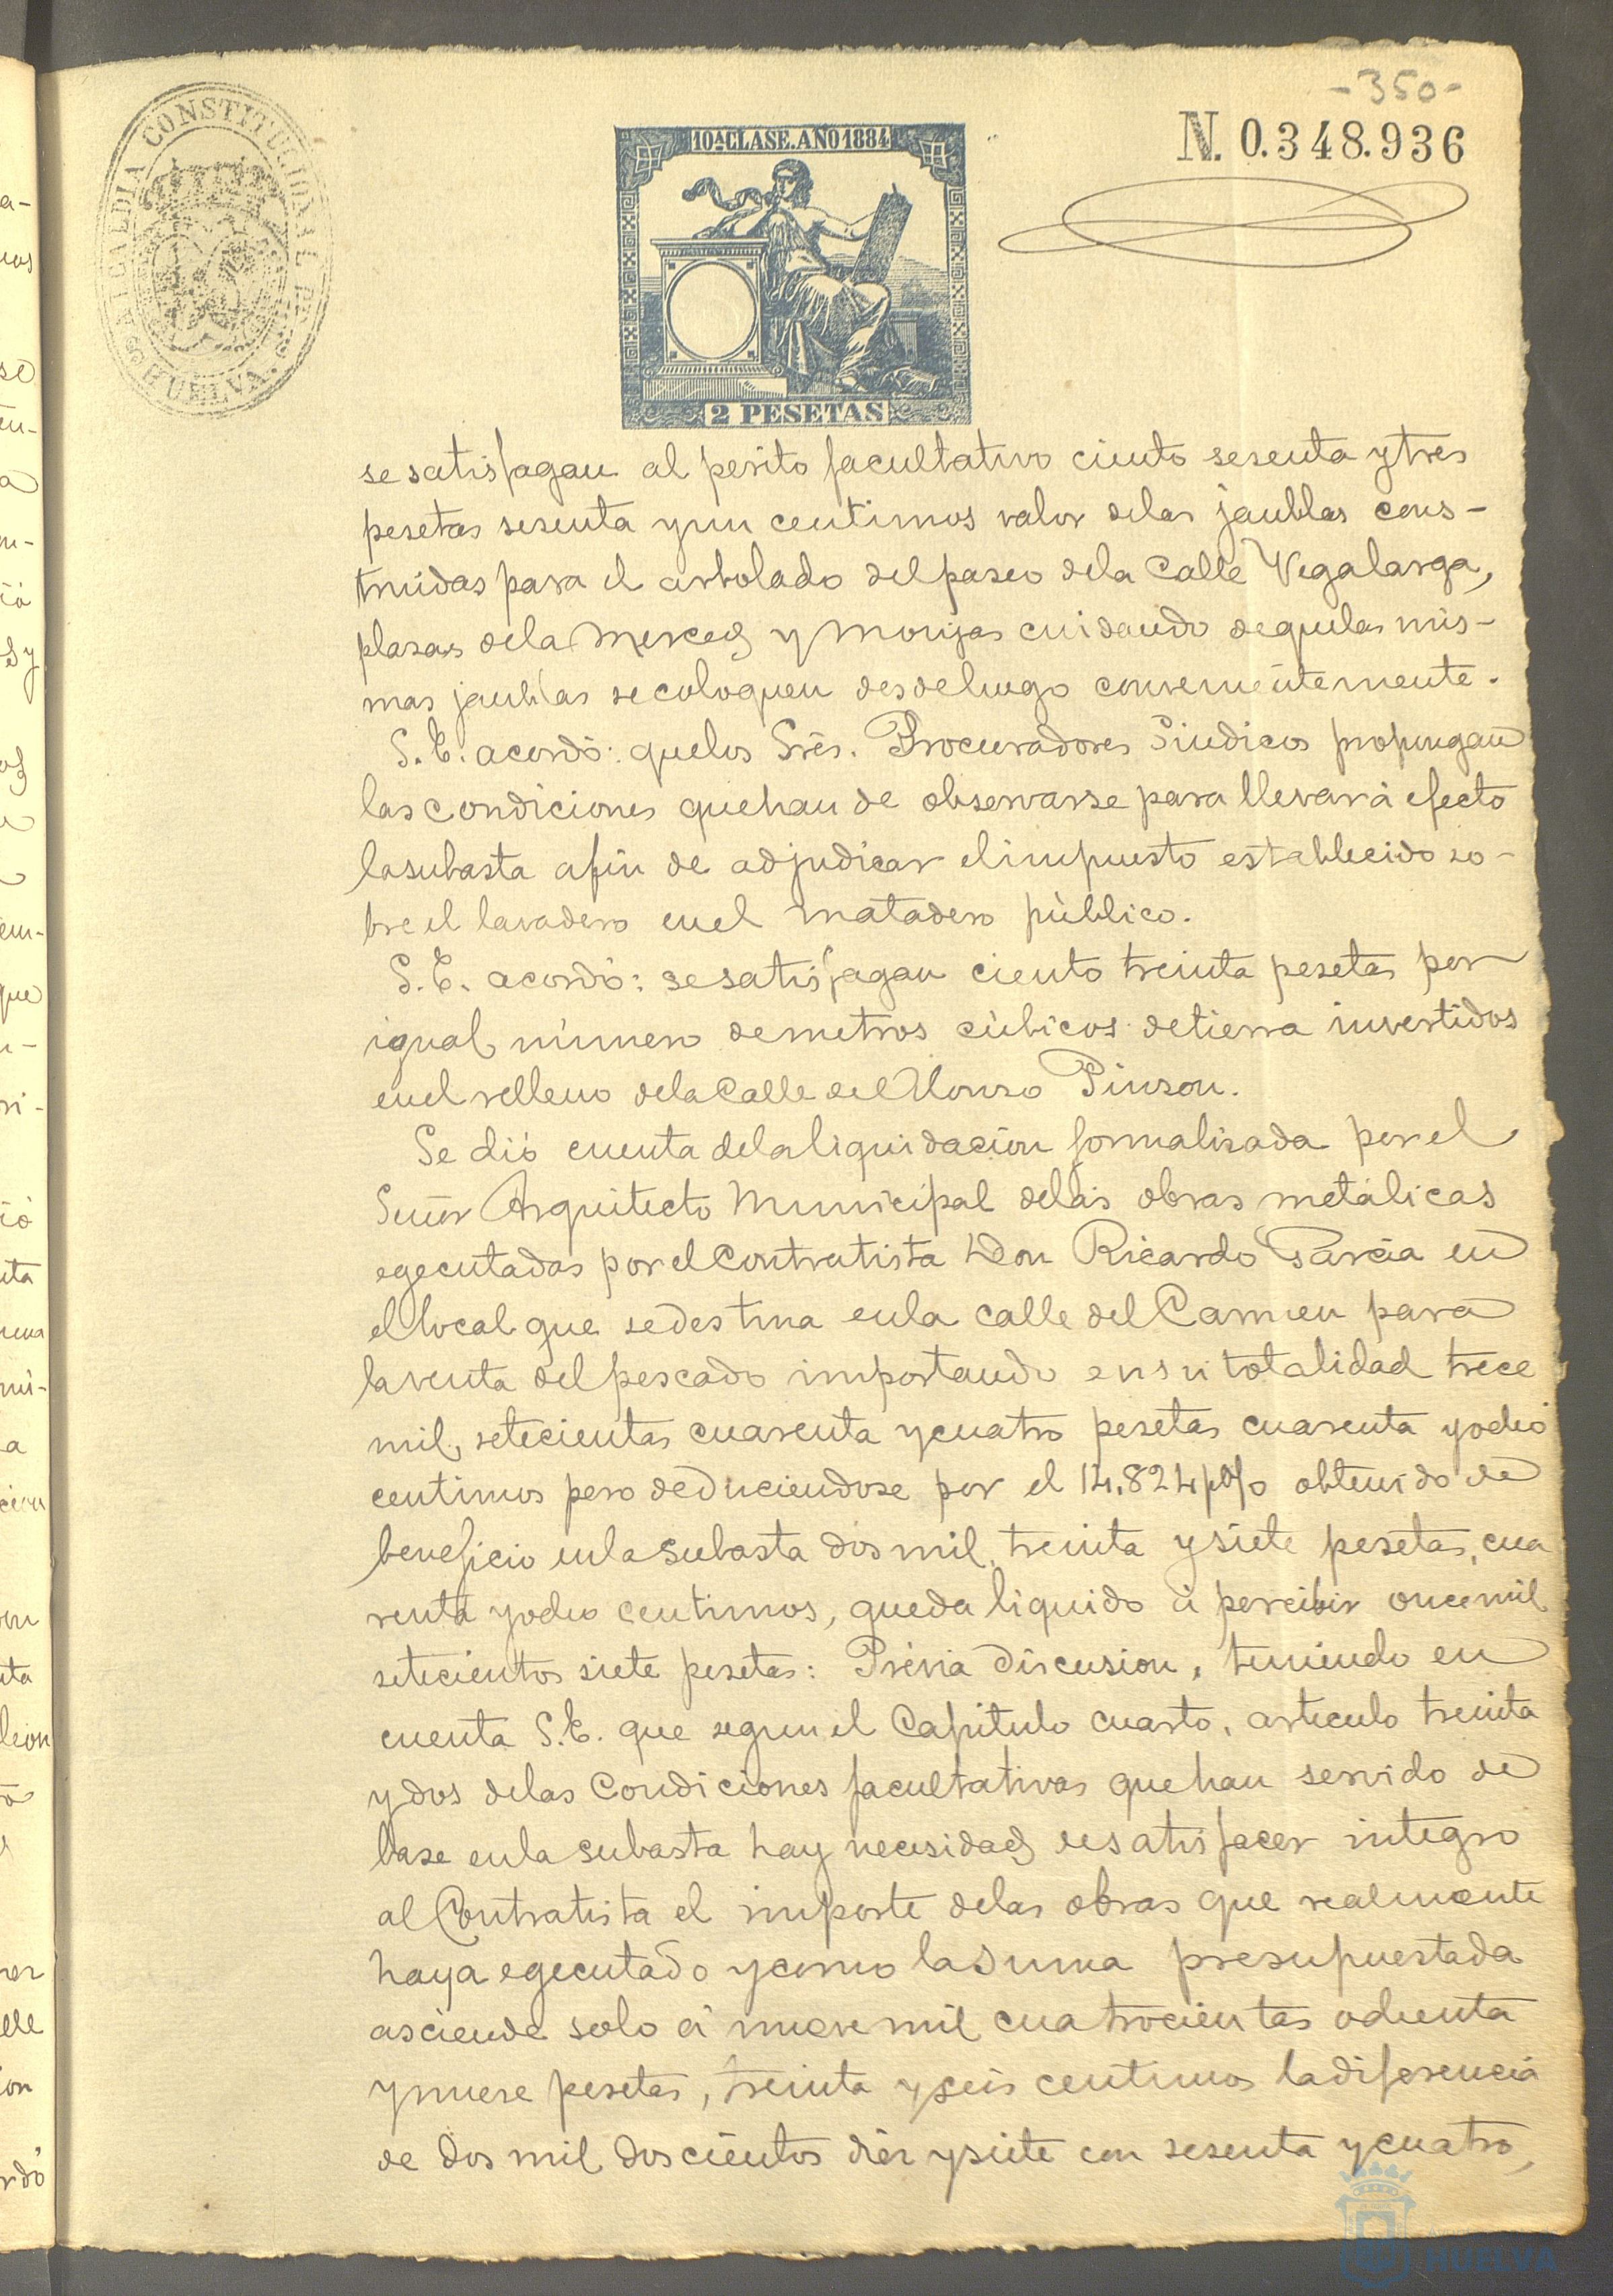 -350-
N. 0.348.936
ALCALDIA CONSTITUCIONAL DE HUELVA.
10ª CLASE. AÑO 1884
2 PESETAS
se satisfagan al perito facultativo ciento sesenta y tres
pesetas sesenta y un centimos valor delas jaublas cons-
truidas para el arbolado del paseo dela Calle Vegalarga,
plazas dela Merced y Monjas cuidando de que las mis-
mas jaublas se coloquen desde luego convenientemente.
S. E. acordó: quelos Srês. Procuradores Sindicos propongan
las condiciones que han de observarse para llevar á efecto
la subasta afin de adjudicar el impuesto establecido so-
bre el lavadero en el matadero público.
S. E. acordó: se satisfagan ciento treinta pesetas por
igual número de metros cúbicos de tierra invertidos
en el relleno dela Calle de Alonso Pinzon.
Se dió cuenta dela liquidación formalizada por el
Señor Arquitecto Municipal delas obras metálicas
egecutadas por el Contratista Don Ricardo Garcia en
el local que se destina en la calle del Carmen para
la venta del pescado importando en su totalidad trece
mil, setecientas cuarenta y cuatro pesetas cuarenta y ocho
centimos pero deduciendose por el 14.824 p% obtenido de
beneficio en la subasta dos mil, treinta y siete pesetas, cua
renta y ocho centimos, queda liquido á percibir once mil
setecientos siete pesetas: Prévia discusion, teniendo en
cuenta S. E. que segun el Capitulo cuarto, articulo treinta
y dos delas Condiciones facultativas que han servido de
base en la subasta hay necesidad de satisfacer integro
al Contratista el importe delas obras que realmente
haya egecutado y como la suma presupuestada
asciende solo á nueve mil cuatrocientas ochenta
y nueve pesetas, treinta y seis centimos la diferencia
de dos mil doscientos diez y siete con sesenta y cuatro,
HUELVA